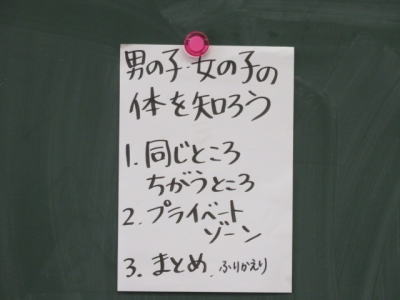 男の子・女の子の
体を知ろう
1. 同じところ
ちがうところ
2. プライベート
ゾーン
3. まとめ. ふりかえり